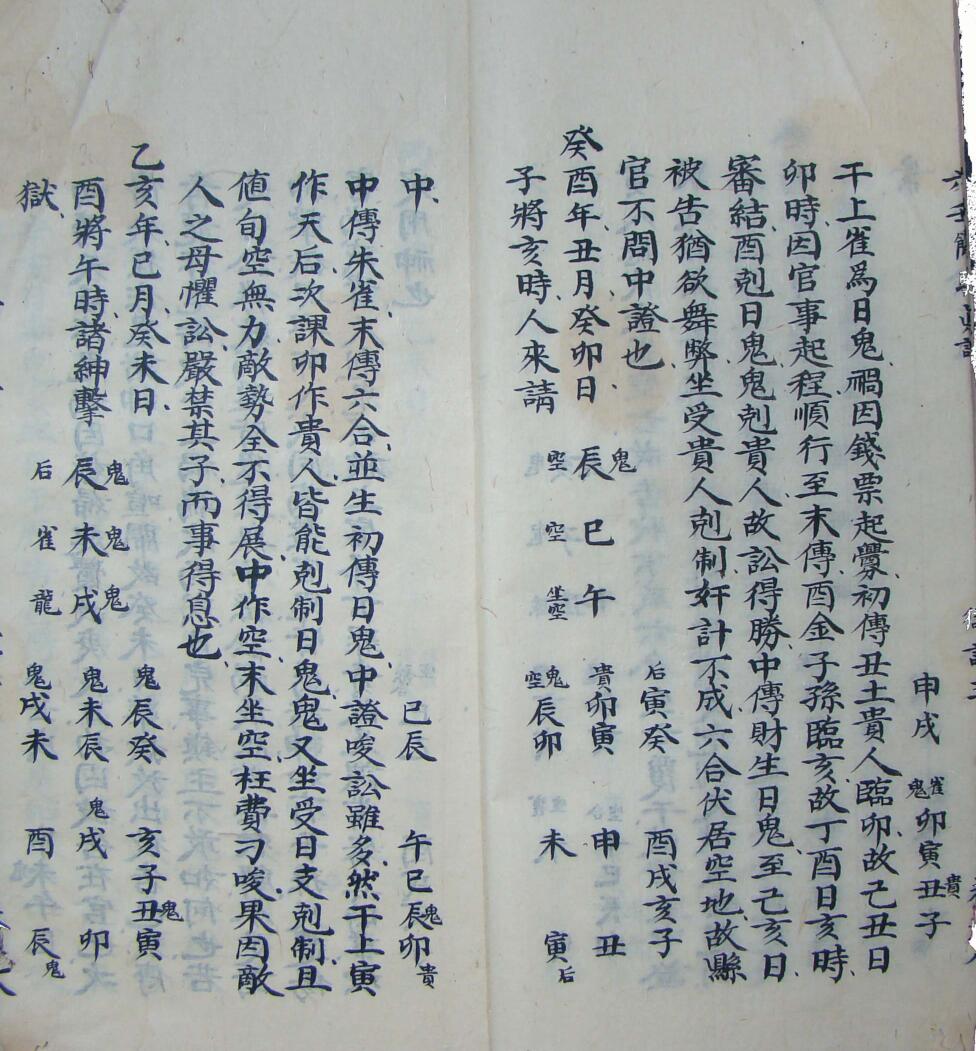 申戌
雀鬼卯寅丑貴子
干上雀為日鬼禍因錢票起釁初傳丑土貴人臨卯故己丑日
卯時因官事起程順行至末傳酉金子孫臨亥故丁酉日亥時
審結酉剋日鬼鬼剋貴人故訟得勝中傳財生日鬼至己亥日
被告猶欲舞弊坐受貴人剋制奸計不成六合伏居空地故縣
官不問中證也
癸酉年丑月癸卯日 辰鬼空 巳空 午坐空 后寅癸 貴卯寅 酉戌亥子
子將亥時人來請 鬼空辰卯 未 申 丑 寅后
中 巳辰 午巳辰鬼卯貴
中傳朱雀末傳六合並生初傳日鬼中證唆訟雖多然干上寅
作天后次課卯作貴人皆能剋制日鬼鬼又坐受日支剋制且
値旬空無力敵勢全不得展中作空末坐空枉費刁唆果因敵
人之母懼訟嚴禁其子而事得息也
乙亥年巳月癸未日 鬼辰癸 亥子丑鬼寅
酉將午時諸紳擊 辰鬼 未鬼 戌鬼 鬼未辰 鬼戌 卯
獄 后 雀 龍 鬼戌未 酉 辰鬼